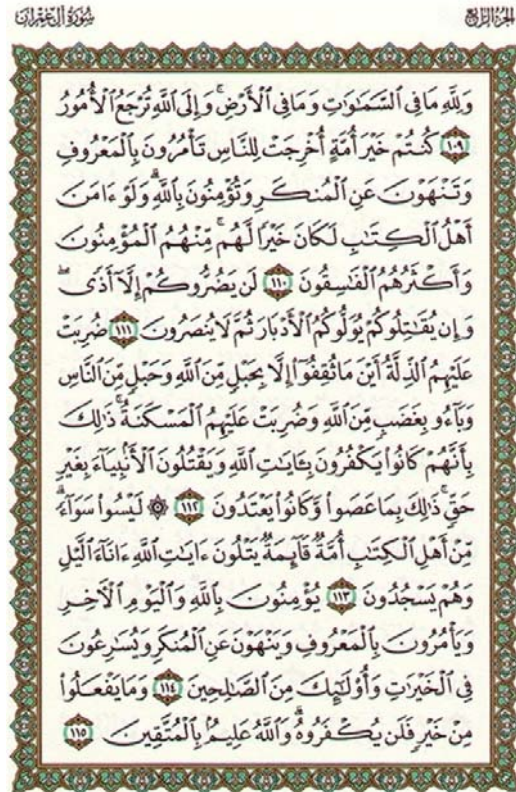 الجزء الرابع
سورة آل عمران
وَلِلَّهِ مَا فِي السَّمَـٰوَٰتِ وَمَا فِي الْأَرْضِ ۚ وَإِلَى اللَّهِ تُرْجَعُ الْأُمُورُ
﴿١٠٩﴾ كُنتُمْ خَيْرَ أُمَّةٍ أُخْرِجَتْ لِلنَّاسِ تَأْمُرُونَ بِالْمَعْرُوفِ
وَتَنْهَوْنَ عَنِ الْمُنكَرِ وَتُؤْمِنُونَ بِاللَّهِ ۗ وَلَوْ ءَامَنَ
أَهْلُ الْكِتَـٰبِ لَكَانَ خَيْرًا لَّهُم ۚ مِّنْهُمُ الْمُؤْمِنُونَ
وَأَكْثَرُهُمُ الْفَـٰسِقُونَ ﴿١١٠﴾ لَن يَضُرُّوكُمْ إِلَّآ أَذًى ۖ
وَإِن يُقَـٰتِلُوكُمْ يُوَلُّوكُمُ الْأَدْبَارَ ثُمَّ لَا يُنصَرُونَ ﴿١١١﴾ ضُرِبَتْ
عَلَيْهِمُ الذِّلَّةُ أَيْنَ مَا ثُقِفُوٓا إِلَّا بِحَبْلٍ مِّنَ اللَّهِ وَحَبْلٍ مِّنَ النَّاسِ
وَبَآءُو بِغَضَبٍ مِّنَ اللَّهِ وَضُرِبَتْ عَلَيْهِمُ الْمَسْكَنَةُ ۚ ذَٰلِكَ
بِأَنَّهُمْ كَانُوا يَكْفُرُونَ بِـَٔايَـٰتِ اللَّهِ وَيَقْتُلُونَ الْأَنۢبِيَآءَ بِغَيْرِ
حَقٍّ ۚ ذَٰلِكَ بِمَا عَصَوا وَّكَانُوا يَعْتَدُونَ ﴿١١٢﴾ ۞ لَيْسُوا سَوَآءً ۗ
مِّنْ أَهْلِ الْكِتَـٰبِ أُمَّةٌ قَآئِمَةٌ يَتْلُونَ ءَايَـٰتِ اللَّهِ ءَانَآءَ الَّيْلِ
وَهُمْ يَسْجُدُونَ ﴿١١٣﴾ يُؤْمِنُونَ بِاللَّهِ وَالْيَوْمِ الْـَٔاخِرِ
وَيَأْمُرُونَ بِالْمَعْرُوفِ وَيَنْهَوْنَ عَنِ الْمُنكَرِ وَيُسَـٰرِعُونَ
فِي الْخَيْرَٰتِ وَأُولَـٰٓئِكَ مِنَ الصَّـٰلِحِينَ ﴿١١٤﴾ وَمَا يَفْعَلُوا
مِنْ خَيْرٍ فَلَن يُكْفَرُوهُ ۗ وَاللَّهُ عَلِيمٌۢ بِالْمُتَّقِينَ ﴿١١٥﴾